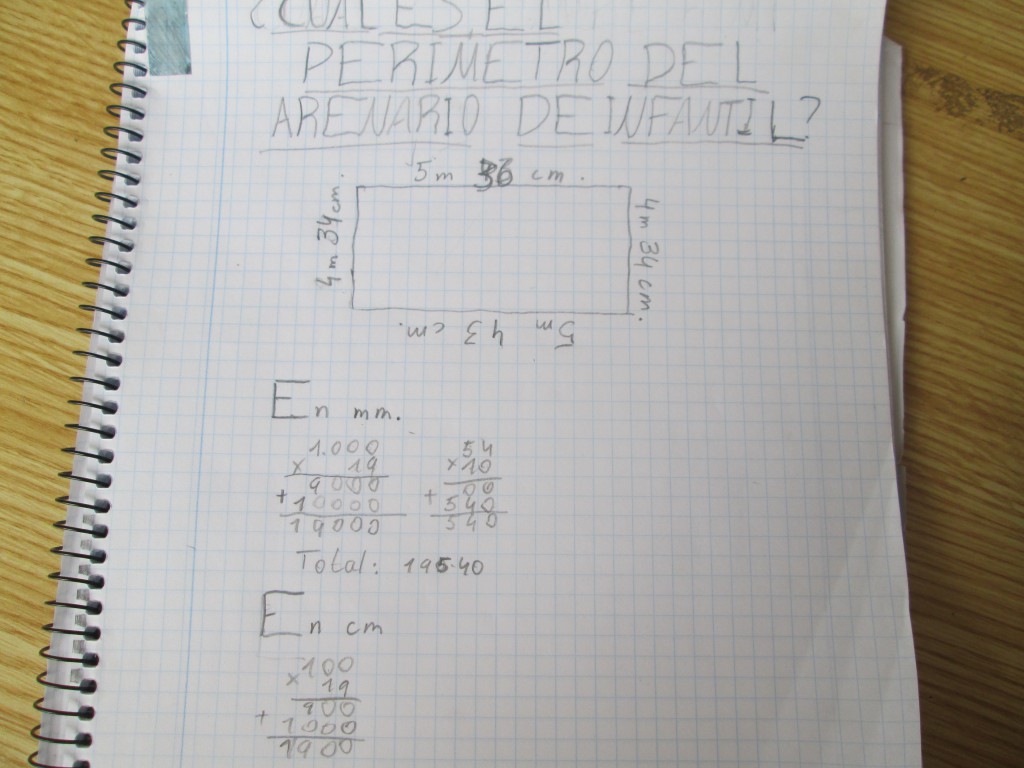 ¿CUAL ES EL
PERIMETRO DEL
ARENARIO DE INFANTIL?
5m 36 cm.
4m 34cm.
4m 34cm.
5m 43 cm.
En mm.
1.000
x 19
9000
+10000
19000
54
x10
00
+540
540
Total: 19540
En cm
x100
19
900
+1000
1900